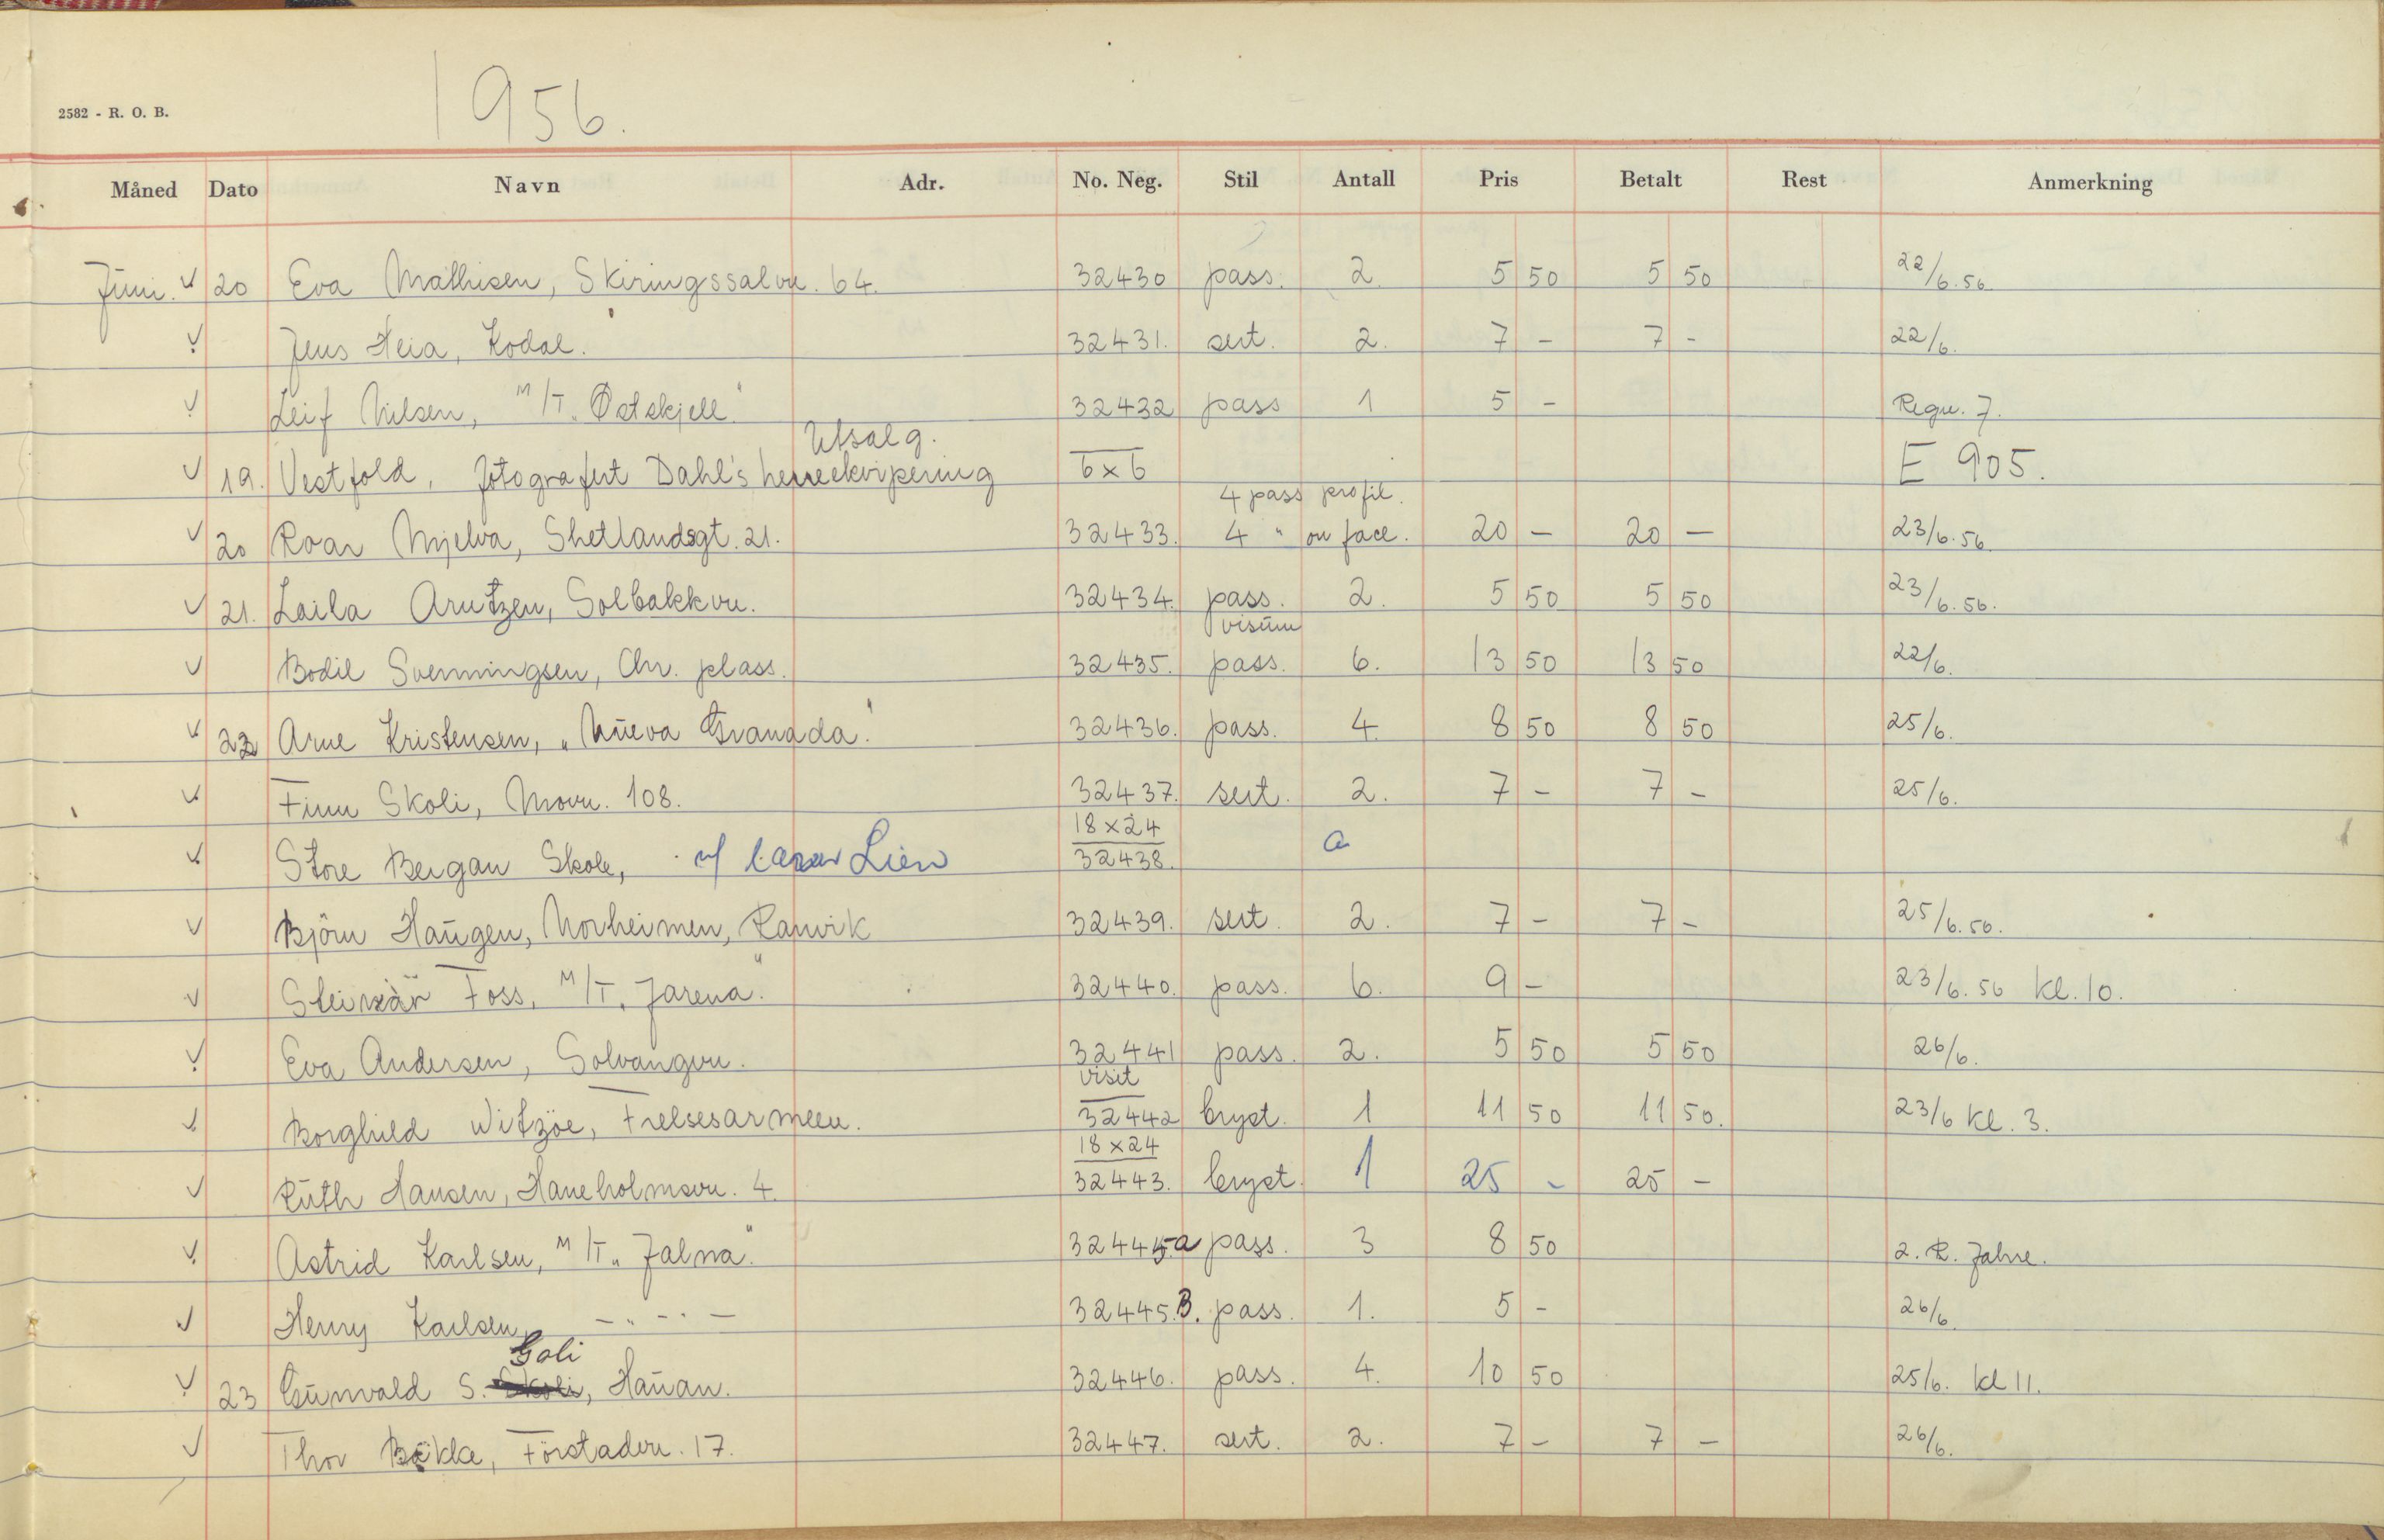 1956.
2582 - R. O. B.
Måned Dato Navn Adr. No. Neg. Stil Antall Pris Betalt Rest Anmerkning
Juni. 20 Eva Mathisen, Skiringssalvn. 64. 32430 pass. 2. 5 50 5 50 22/6.56.
Jens Heia, Kodal. 32431. sert. 2. 7 - 7 - 22/6.
Leif Nilsen, M/T „Østskjell" 32432 pass 1 5 - Regn. 7.
Utsalg.
19. Vestfold, fotografert Dahl's herreekvipering 6x6 E 905.
4 pass profil.
20 Roar Mjelva, Shetlandsgt. 21. 32433. 4 " on face. 20 - 20 - 23/6.56.
21. Laila Arntzen, Solbakkvn. 32434. pass. 2. 5 50 5 50 23/6.56.
visum
Bodil Svenningsen, Chr. plass. 32435. pass. 6. 13 50 13 50 22/6.
22 Arne Kristensen, „Nueva Granada." 32436. pass. 4. 8 50 8 50 25/6.
Finn Skoli, Movn. 108. 32437. sert. 2. 7 - 7 - 25/6.
18x24
Store Bergan Skole, Lien 32438. a
Björn Haugen, Norheimen, Ranvik 32439. sert. 2. 7 - 7 - 25/6.56.
Foss, M/T „Jarena." 32440. pass. 6. 9 - 23/6.56 kl. 10.
Eva Andersen, Solvangvn. 32441 pass. 2. 5 50 5 50 26/6.
visit
Borghild Witzöe, Frelsesarmeen. 32442 bryst. 1 11 50 11 50. 23/6 kl. 3.
18x24
Ruth Hansen, Haneholmsvn. 4. 32443. bryst. 1 25 - 25 -
Astrid Karlsen, M/T „Jalna." 32445a pass. 3 8 50 2. R. Jahre.
Henry Karlsen, - " - " - 32445.B. pass. 1. 5 - 26/6.
Goli
23 Gunvald S. Skoli, Hauan. 32446. pass. 4. 10 50 25/6. kl 11.
Thor Bekke, Förstadvn. 17. 32447. sert. 2. 7 - 7 - 26/6.